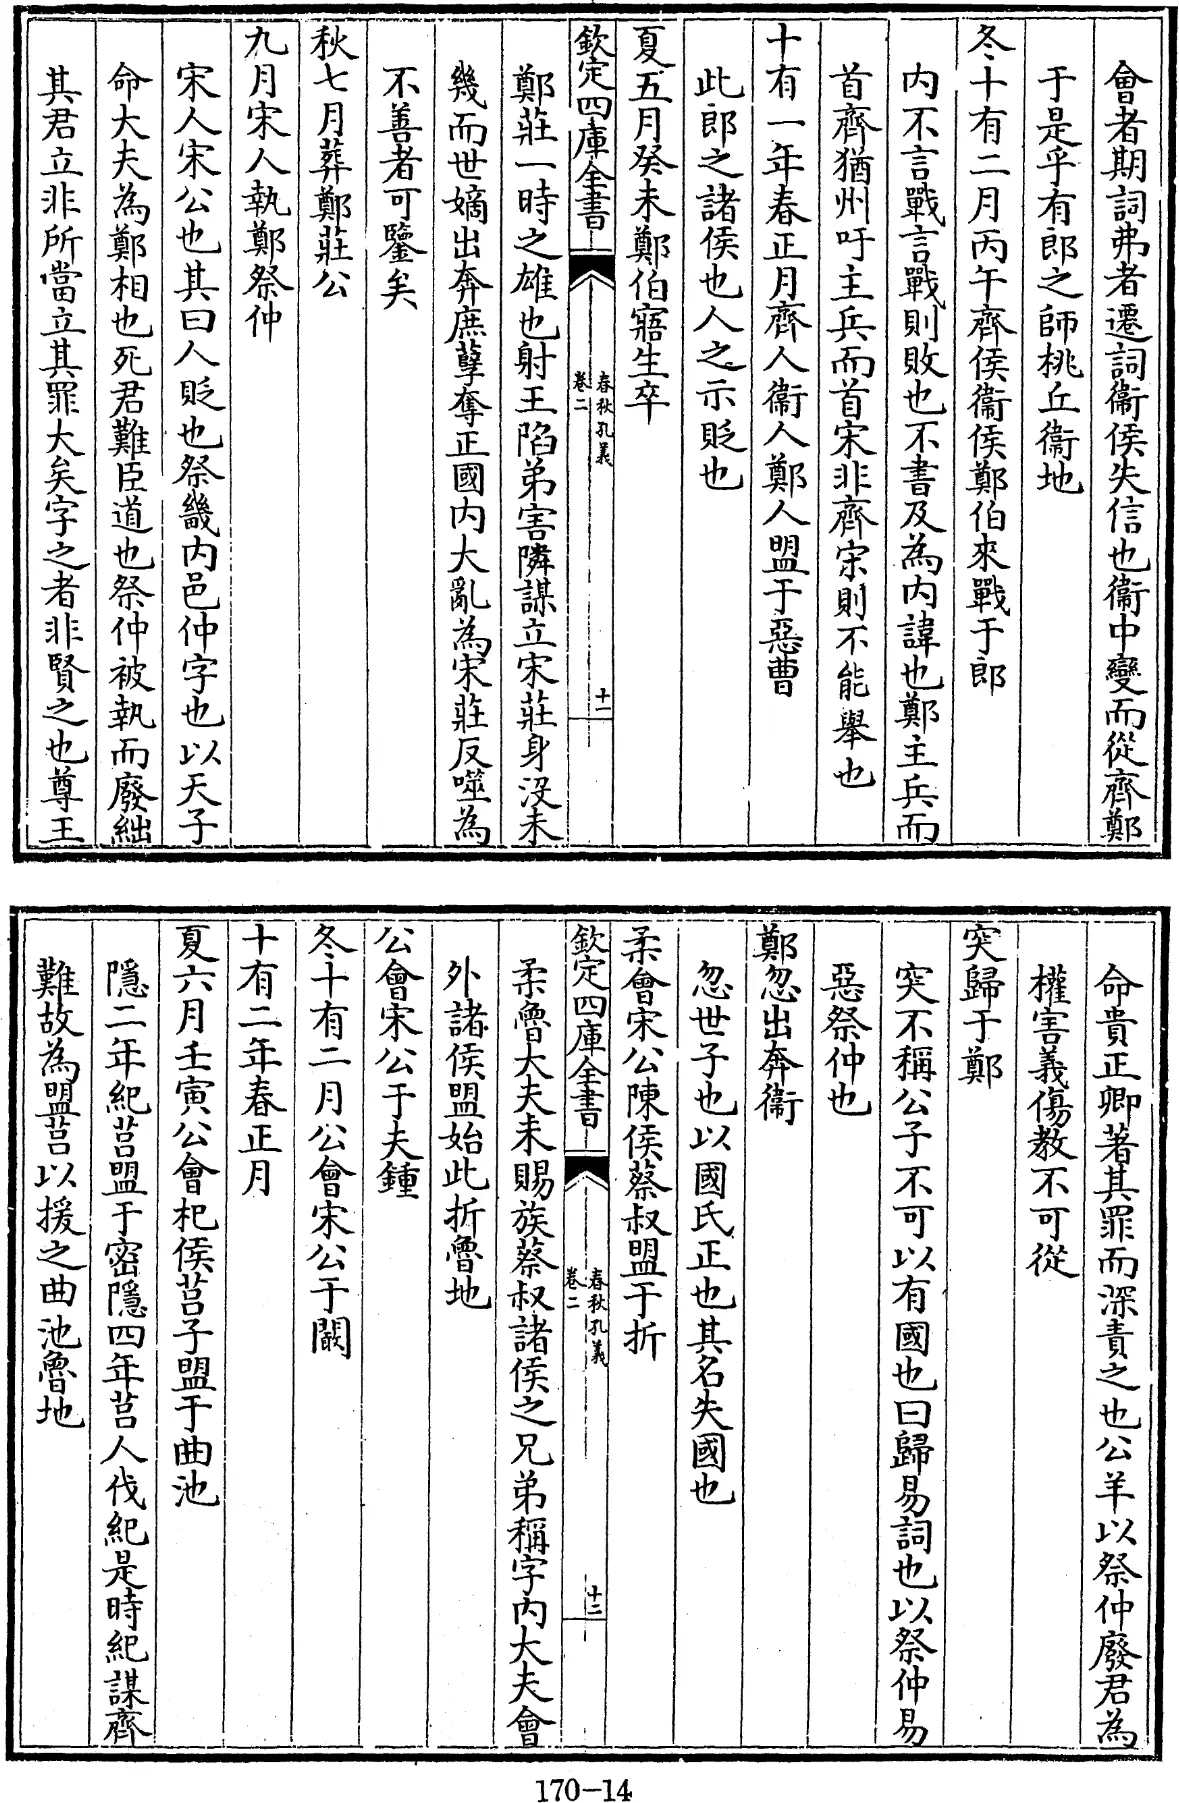 會者期詞弗者遷詞衞侯失信也衞中變而從齊鄭
于是乎有郎之師桃丘衞地
冬十有二月丙午齊侯衞侯鄭伯來戰于郎
内不言戰言戰則敗也不書及為内諱也鄭主兵而
首齊猶州吁主兵而首宋非齊宋則不能舉也
十有一年春正月齊人衞人鄭人盟于惡曹
此郎之諸侯也人之示貶也
夏五月癸未鄭伯寤生卒
欽定四庫全書
春秋孔義
卷二
十一
鄭莊一時之雄也射王陷弟害隣謀立宋莊身沒未
幾而世嫡出奔庶孽奪正國内大亂為宋莊反噬為
不善者可鑒矣
秋七月葬鄭莊公
九月宋人執鄭祭仲
宋人宋公也其曰人貶也祭畿内邑仲字也以天子
命大夫為鄭相也死君難臣道也祭仲被執而廢絀
其君立非所當立其罪大矣字之者非賢之也尊王
命貴正卿著其罪而深責之也公羊以祭仲廢君為
權害義傷教不可從
突歸于鄭
突不稱公子不可以有國也曰歸易詞也以祭仲易
惡祭仲也
鄭忽出奔衞
忽世子也以國氏正也其名失國也
柔會宋公陳侯蔡叔盟于折
欽定四庫全書
春秋孔義
卷二
十二
柔魯大夫未賜族蔡叔諸侯之兄弟稱字内大夫會
外諸侯盟始此折魯地
公會宋公于夫鍾
冬十有二月公會宋公于闞
十有二年春正月
夏六月壬寅公會杞侯莒子盟于曲池
隱二年紀莒盟于密隱四年莒人伐紀是時紀謀齊
難故為盟莒以援之曲池魯地
170-14